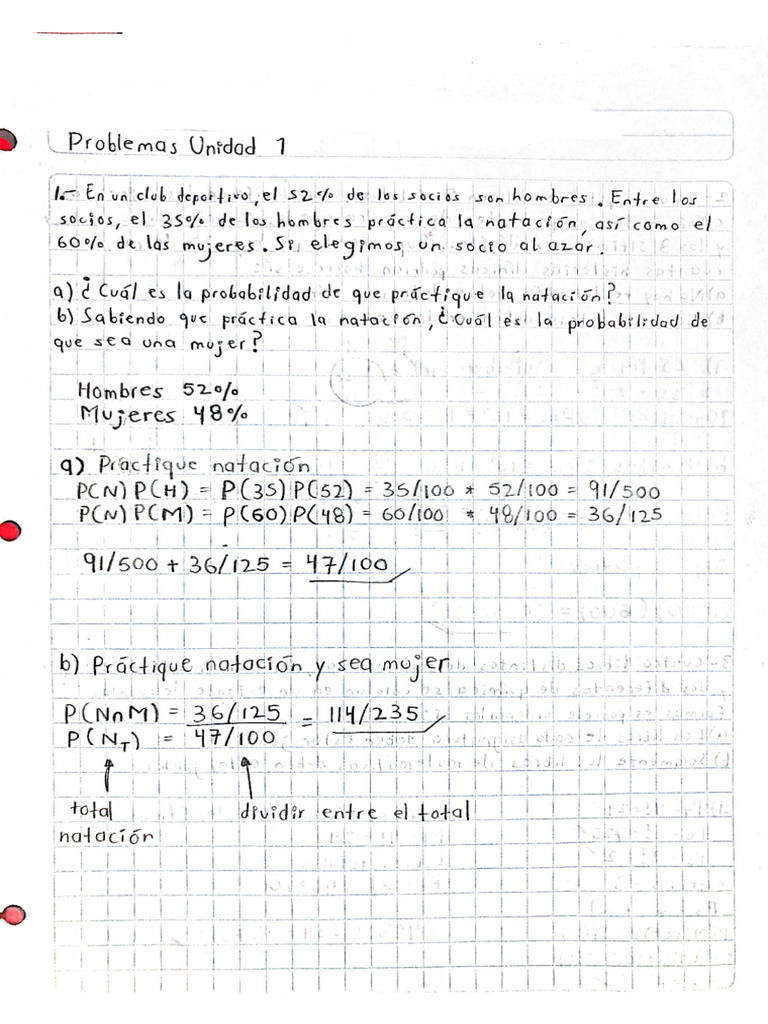 Problemas Unidad 1
1.- En un club deportivo, el 52% de los socios son hombres. Entre los
socios, el 35% de los hombres práctica la natación, así como el
60% de las mujeres. Si elegimos un socio al azar:
a) ¿Cuál es la probabilidad de que práctique la natación?
b) Sabiendo que práctica la natación, ¿Cuál es la probabilidad de
que sea una mujer?
Hombres 52%
Mujeres 48%
a) Practique natación
P(N) P(H) = P(35) P(52) = 35/100 * 52/100 = 91/500
P(N) P(M) = P(60) P(48) = 60/100 * 48/100 = 36/125
91/500 + 36/125 = 47/100
b) Práctique natación y sea mujer
P(N∩M) = 36/125 = 114/235
P(N_T) = 47/100
total dividir entre el total
natación